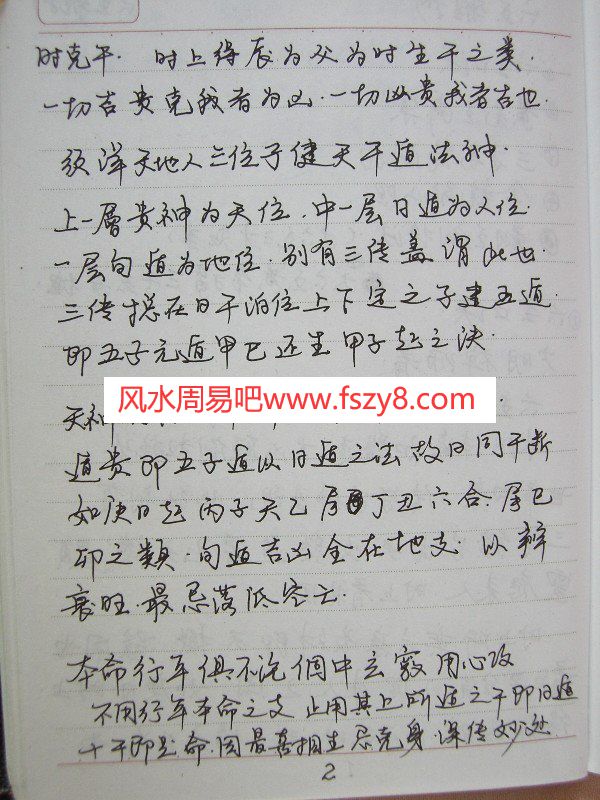 时克干. 时上得辰为父为时生干之类.
一切吉贵克我者为凶.一切凶贵我者吉也
须详天地人三位子健天干遁法
上一層贵神为天位.中一层日遁为人位.
一层旬遁为地位.别有三传盖谓此也.
三传总在日干泊位上下定之子建五遁.
即五子元遁甲己还生甲子起之决.
风水周易吧www.fszy8.com
天神
遁贵即五子遁以日遁之法故日同干断
如庚日起丙子天乙属丁丑六合.属巳
卯之類.旬遁吉凶全在地支.以辨
衰旺.最忌落低空亡.
本命行年俱不说個中玄竅用心改
不用行年本命之支止用其上所遁之干即日遁
十干即是命.因最喜相生忌克身.深传妙处
2